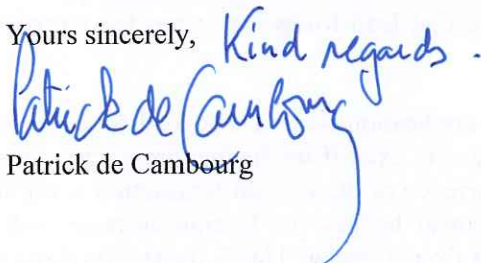 Yours sincerely, Kind regards.
Patrick de Cambourg
Patrick de Cambourg